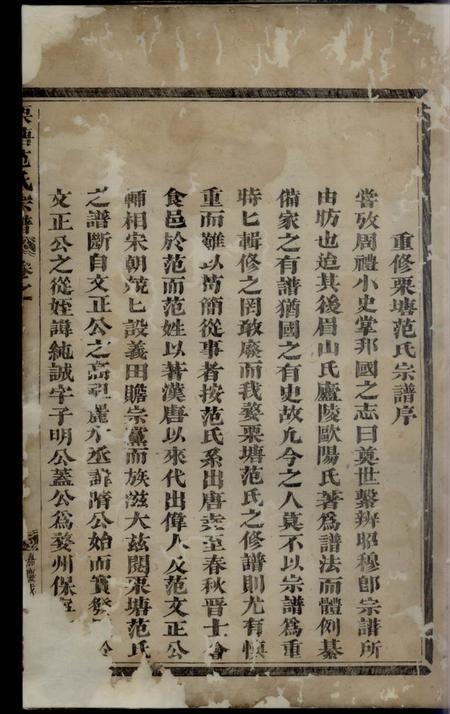 重修栗塘范氏宗譜序
嘗攷周禮小史掌邦國之志曰奠世繫辨昭穆卽宗譜所
由昉也迨其後眉山氏廬陵歐陽氏著爲譜法而體例綦
備家之有譜猶國之有史故凡今之人莫不以宗譜爲重
時匕輯修之罔敢廢而我婺栗塘范氏之修譜則尤有慎
重而難以苟簡從事者按范氏系出唐堯至春秋晋士會
食邑於范而范姓以著漢唐以來代出偉人及范文正公
輔相宋朝
設義田贍宗黨而族滋大茲閱栗塘范氏
之譜斷自文正公之高祖麗水丞諱隋公始而實發
文正公之從姪諱純誠字子明公蓋公爲婺州保
栗塘范氏宗譜 卷之一